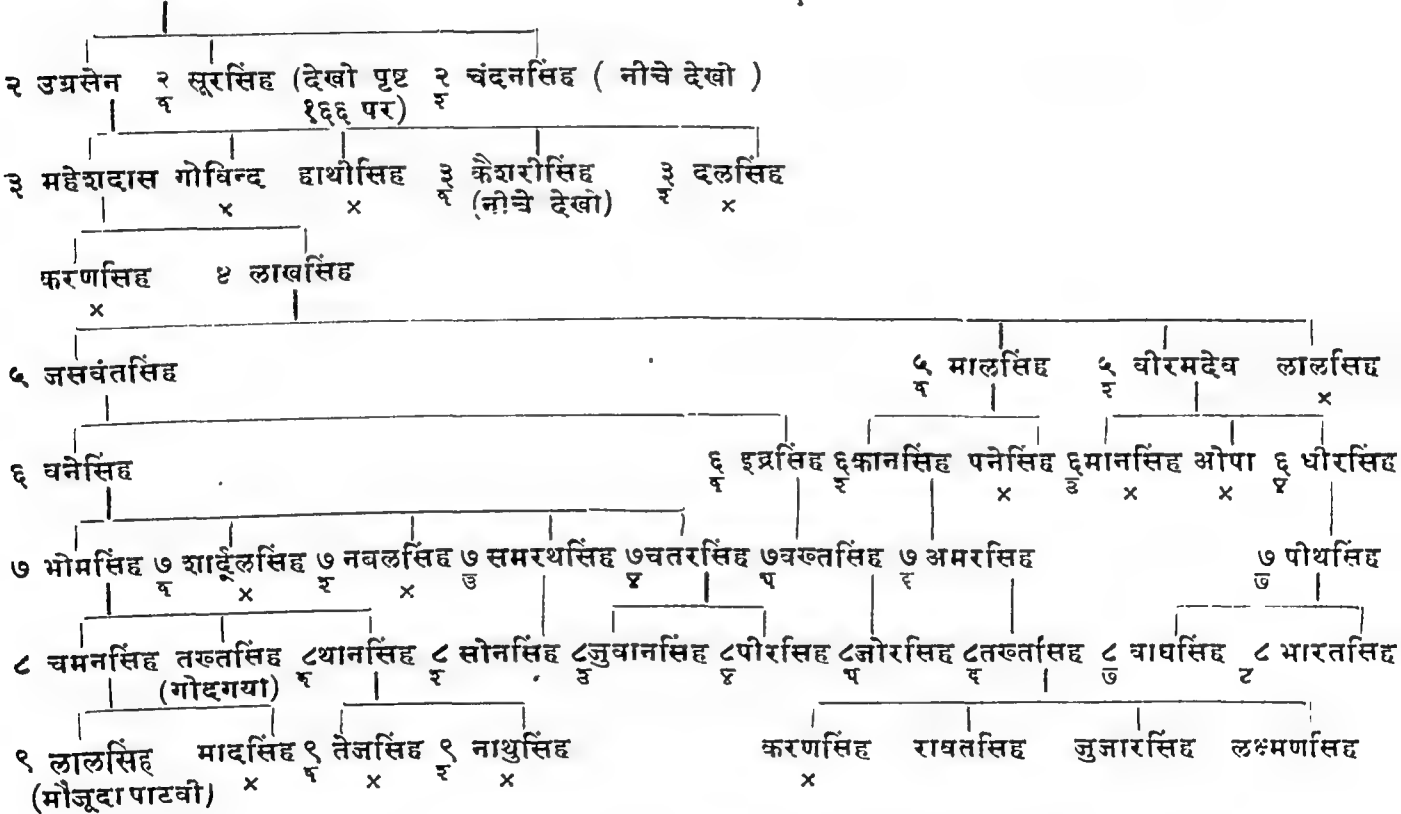 २ उग्रसेन २/१ सूरसिंह (देखो पृष्ट १६६ पर) २/२ चंदनसिंह ( नीचे देखो )
३ महेशदास गोविन्द हाथीसिंह ३/१ कैशरीसिंह ३/२ दलसिंह
× × (नीचे देखो) ×
करणसिंह ४ लाखसिंह
×
५ जसवंतसिंह ५/१ मालसिंह ५/२ वीरमदेव लालसिंह
×
६ वनेसिंह ६/१ इन्द्रसिंह ६/२ कानसिंह पनेसिंह ६/३ मानसिंह ओपा ६/४ धीरसिंह
× × ×
७ भोमसिंह ७/१ शार्दूलसिंह ७/२ नबलसिंह ७/३ समरथसिंह ७/४ चतरसिंह ७/५ वख्तसिंह ७/६ अमरसिंह ७/७ पीथसिंह
× ×
८ चमनसिंह तख्तसिंह ८/१ थानसिंह ८/२ सोनसिंह ८/३ जुवानसिंह ८/४ पीरसिंह ८/५ जोरसिंह ८/६ तख्तसिंह ८/७ वाघसिंह ८/८ भारतसिंह
(गोदगया)
९ लालसिंह मादसिंह ९/१ तेजसिंह ९/२ नाथुसिंह करणसिंह रावतसिंह जुजारसिंह लक्ष्मणसिंह
(मौजूदा पाटवी) × × × ×